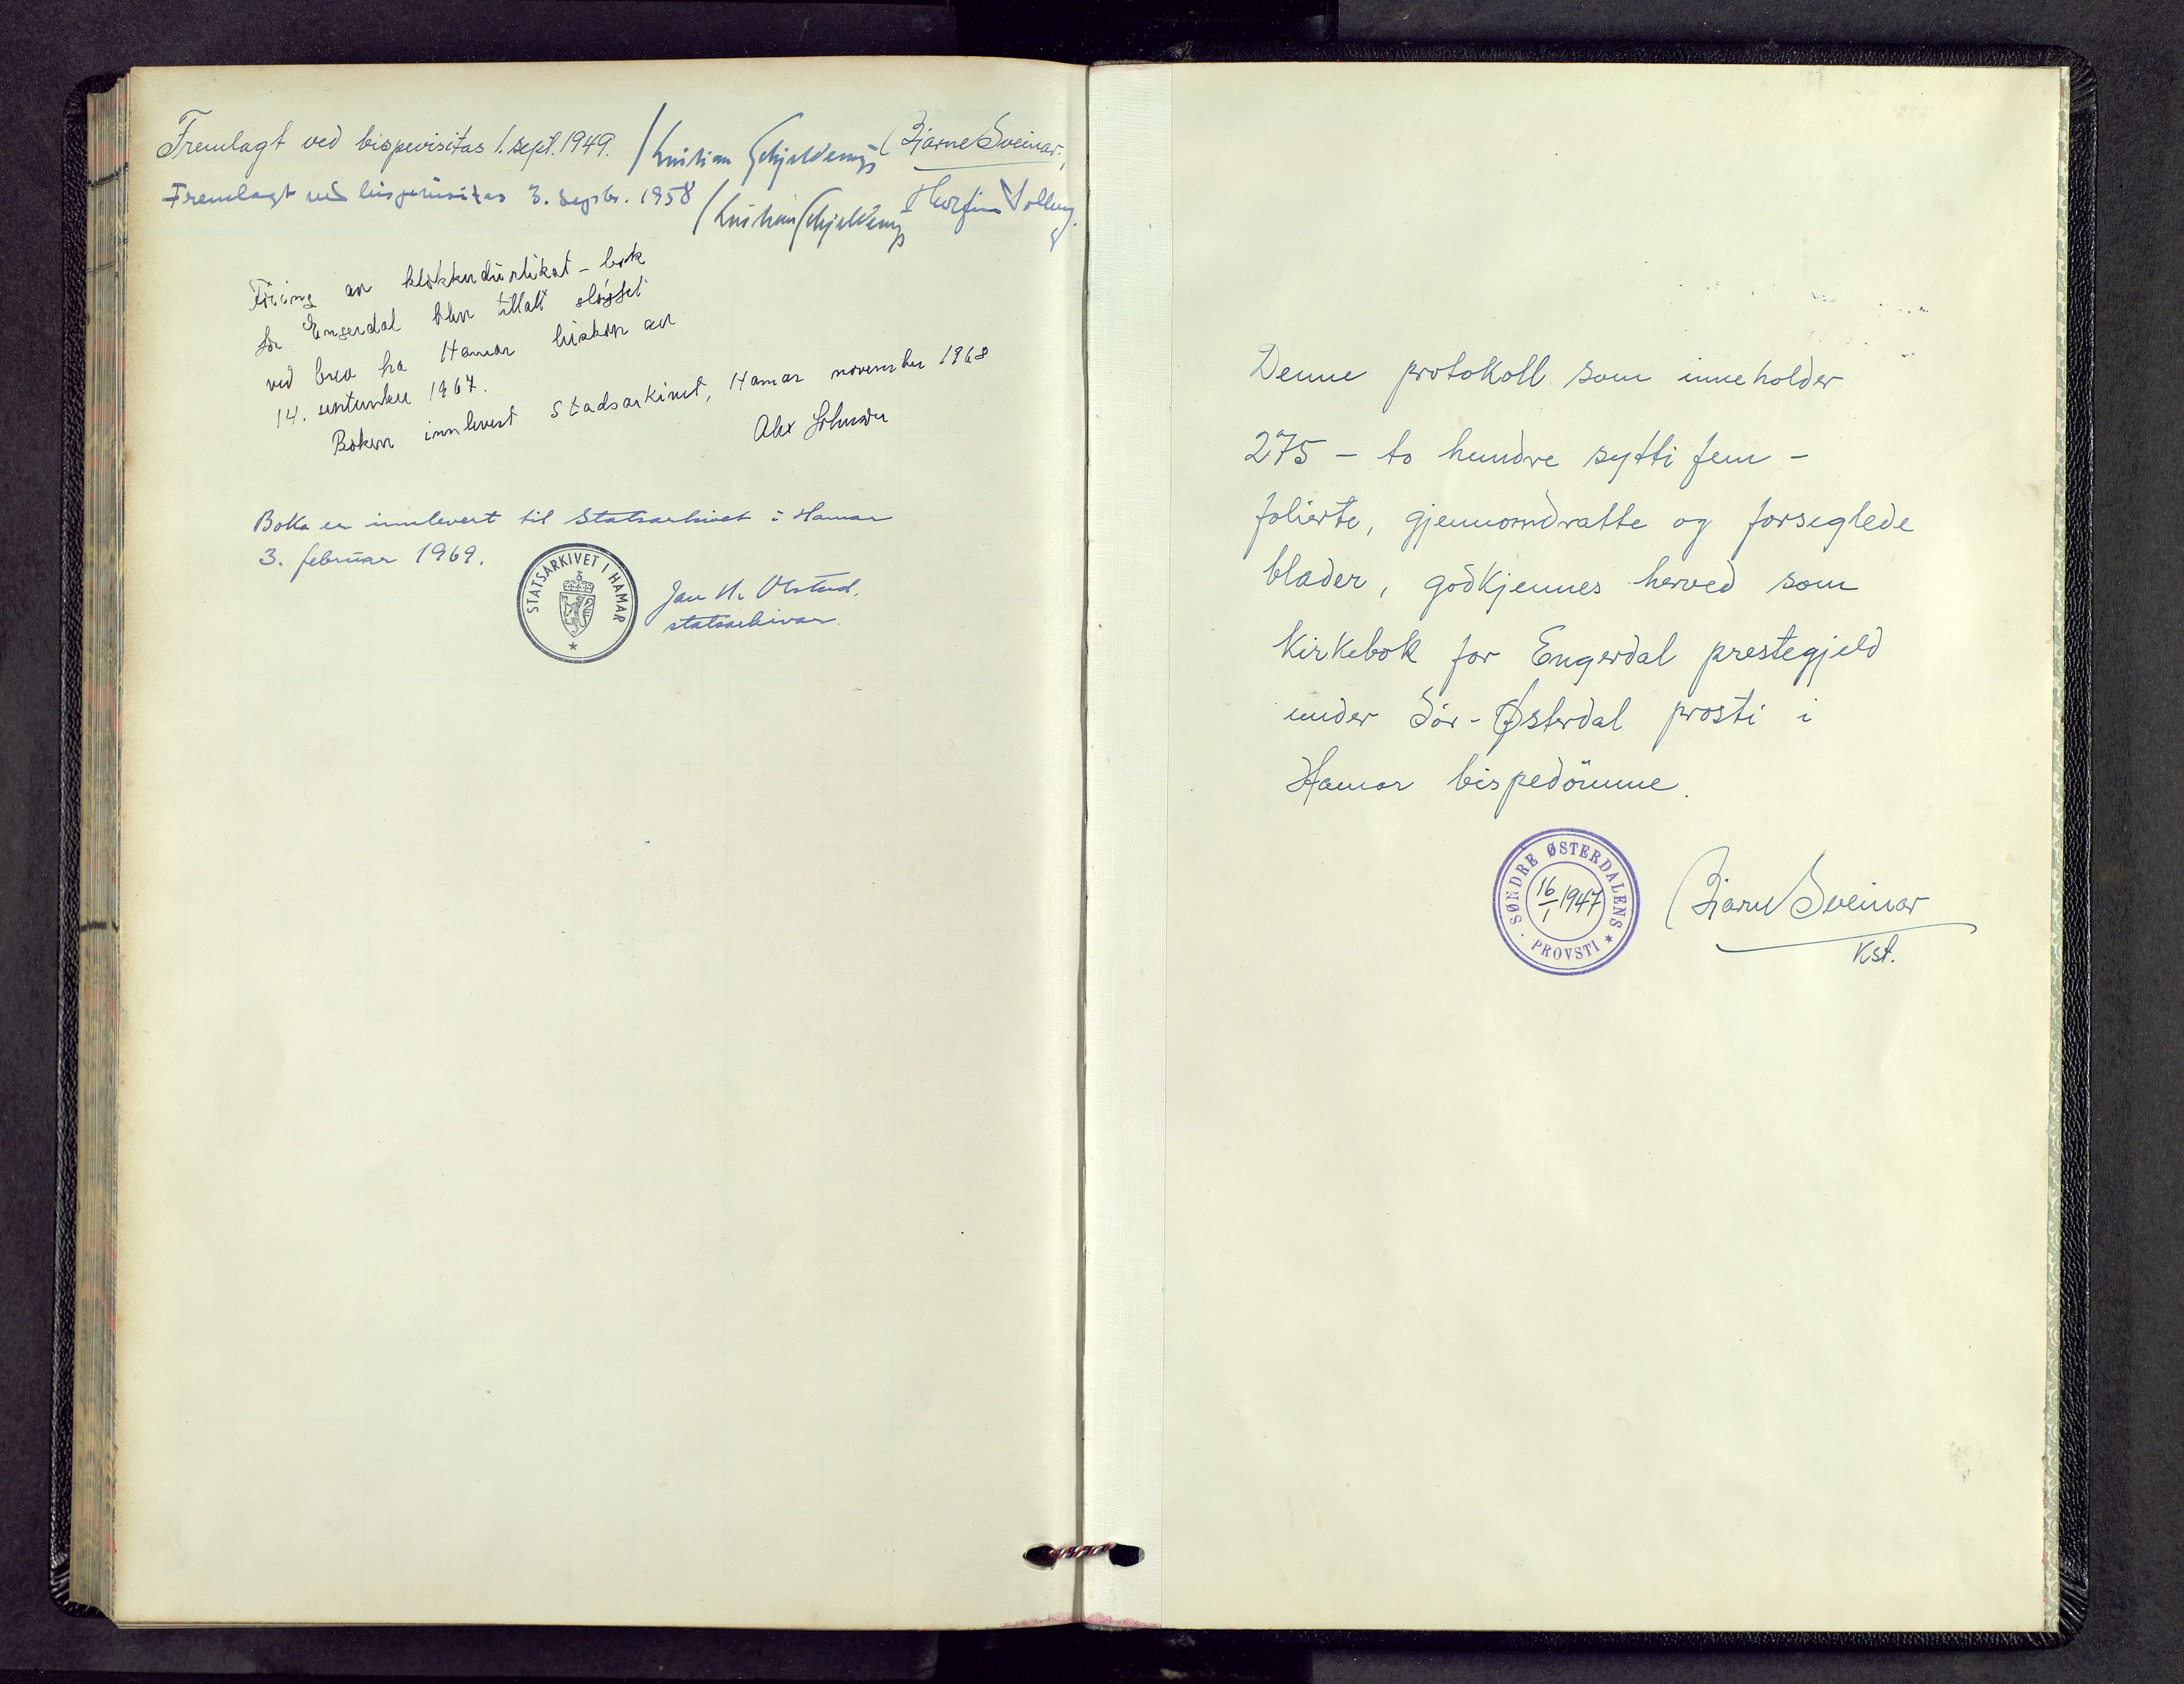 Fremlagt ved bispevisitas 1. sept. 1949. Kristian Schjelderup Bjarne Sveinar.
Fremlagt ved bispevisitas 3. septbr. 1958 Kristian Schjelderup
Föring av klokkerduplikat-bok
for Engerdal blev tillatt slöyfet
ved brev fra Hamar biskop av
14. september 1967.
Boken innlevert Stadsarkivet, Hamar november 1968
Alex Johnson
Boka er innlevert til Statsarkivet i Hamar
3. februar 1969.
STATSARKIVET I HAMAR
Jan H. Olstad.
statsarkivar.
Denne protokoll som inneholder
275 - to hundre sytti fem -
folierte, gjennomdratte og forseglede
blader, godkjennes herved som
kirkebok for Engerdal prestegjeld
under Sör-Østerdal prosti i
Hamar bispedömme.
SØNDRE ØSTERDALENS PROVSTI
16/1 1947
Bjarne Sveinar
kst.